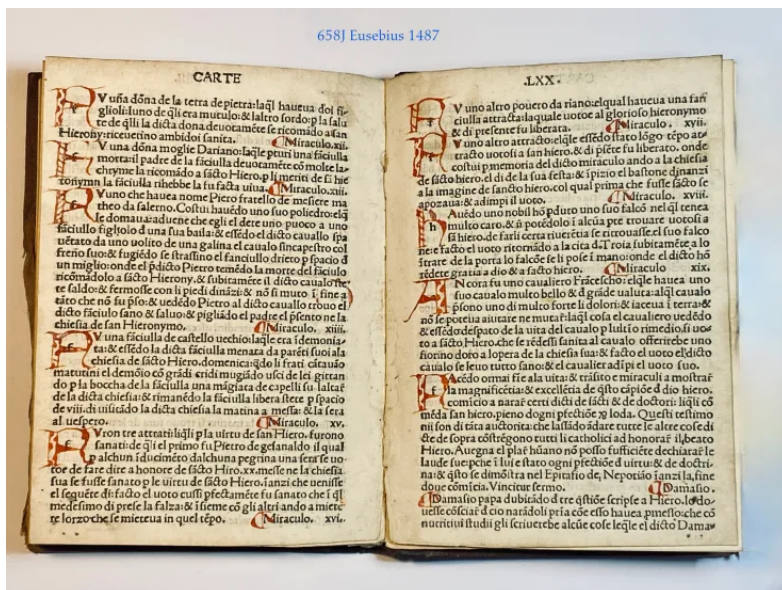 658J Eusebius 1487
CARTE
FV uña dõna de la terra de pietra:laq̃l haueua doi fi
glioli:luno de q̃li era mutulo:& laltro sordo:p la salu
te de q̃lli la dicta dona deuotamẽte se ricomãdo a san
Hierony:riceuetino ambidoi sanita. Miraculo.xii.
FV una dõna moglie Dariano:laq̃le pturi una fãciulla
morta:il padre de la fãciulla deuotamẽte cõ molte la
chryme la ricomãdo a sãcto Hiero.p li meriti de sã hie
ronymn la fãciulla rihebbe la fu facta uiua. Miraculo.xiii.
FV uno che haueua nome Pietro fratello de mesiere ma
theo da salerno. Costui hauẽdo uno suo poliedro:elq̃l
le domaua:aduene che egli el dete uno puoco a uno
fãciullo figliolo d una sua baila:& essẽdo el dicto cauallo spa
uẽtato da uno uolito de una galina el caualo sincapestro col
freno suo:& fugiẽdo se strassino el fanciullo drieto p spacio d
un miglio:onde el p̃dicto Pietro temẽdo la morte del fãciulo
ricomãdolo a sãcto Hierony.& subitamẽte il dicto caualo ste
te saldo:& fermosse con li piedi dinãzi:& nõ si muto ĩ fine a
tãto che nõ fu p̃so:& uedẽdo Pietro al dicto cauallo trouo el
dicto fãciulo sano & saluo:& pigliãdo el padre el p̃sento ne la
chiesia de san Hieronymo. Miraculo. xiiii.
FV una fãciulla de castello uechio:laq̃le era ĩdemonia-
ta:& essẽdo la dicta fãciulla menata da parẽti suoi a la
chiesia de sãcto Hiero.domenica:q̃do li frati cãtauão
matutini el demõio cõ grãdi cridi mugiãdo usci de lei gittan
do p la boccha de la fãciulla una mãgiata de capelli su laltar
de la dicta chiesia:& rimanẽdo la fãciulla libera stete p spacio
de viii.di uisitãdo la dicta chiesia la matina a messa:& la sera
al uespero. Miraculo. xv.
FVron tre attrati:liq̃li p la uirtu de san Hiero. furono
sanati:de q̃li el primo fu Pietro de gesanaldo il qual
p alchun ĩducimẽto dalchuna pegrina una sera se uo
toe de fare dire a honore de sãcto Hiro.xx.messe ne la chiesia
sua se fusse sanato p le uirtu de sancto Hiero.ianzi che uenisse
el sequẽte di:facto el uoto cussi pfectamẽte fu sanato che ĩ q̃l
medesimo di prese la falza:& ĩsieme cõ gli altri ando a miete
re lorzo che se mieteua in quel tẽpo. Miraculo xvi.
.LXX.
FV uno altro pouero da riano:elqual haueua una fan
ciulla attracta:laquale uotoe al glorioso hieronymo
& di presente fu liberata. Miraculo. xvii.
FV uno altro attracto:elq̃le essẽdo stato lõgo tẽpo at-
tracto uotossi a san hiero.& di p̃sẽte fu liberato. onde
costui p memoria del dicto miraculo ando a la chiesia
de sãcto hiero.el di de la sua festa:& ĩpizio el bastone dinanzi
a la imagine de sancto hiero.col qual prima che fusse sãcto se
apozaua:& adimpi il uoto. Miraculo. xviii.
HAuẽdo uno nobil hõ pduto uno suo falcõ nel q̃l tenea
multo caro.& nõ potẽdolo ĩ alcũa pte trouare uotosi a
sã hiero.de farli certa riuerẽtia se ritrouasse el suo falco
ne:& facto el uoto ritornãdo a la cita d.Troia subitamẽte a lo
ĩtrare de la porta lo falcõe se li pose ĩ mano:onde el dicto hõ
rẽdete gratia a dio & a sãcto hiero. Miraculo xix.
ANcora fu uno caualiero Frãcescho:elq̃le hauea uno
suo caualo multo bello & d grãde ualuta:alq̃l caualo
p̃sono uno di molto forte li dolori:& iaceua ĩ terra:&
nõ se poteua aiutare ne mutare:laq̃l cosa el caualiero uedẽdo
& essẽdo despato de la uita del caualo p lultĩo rimedio.si uo-
to a sãcto Hiero.che se rẽdessi sanita al caualo offerirebe uno
fiorino doro a lopera de la chiesia sua:& facto el uoto el dicto
caualo se leuo tutto sano:& el caualier adĩpi el uoto suo.
FAcẽdo ormai fie a la uita:& trãsito e miraculi a mostrar
la magnificẽtia:& excellẽtia de q̃sto cãpiõe d dio hiero.
comĩcio a narar certi dicti de sãcti & de doctori: liq̃li cõ
mẽda san hiero.pieno dogni pfectiõe & loda. Questi testimo
nii son di tãta auctorita:che lassãdo ãdare tutte le altre cose di
cte de sopra cõstrẽgono tutti li catholici ad honorar il beato
Hiero. Auegna el plar hũano nõ posso sufficiẽte dechiarar le
laude sue:pche ĩ lui e stato ogni pfectiõe d uirtu:& de doctri-
na:& q̃sto se dimõstra nel Epitafio de, Nepotião ĩanzi la,fine
doue comĩcia.Vincitur sermo. Damasio.
Damasio papa dubitãdo d tre q̃stiõe scripse a Hiero.lo do-
uesse cõsciar d cio narãdoli pria cõe esso hauea pmesso:che cõ
nutritiui studii gli scriuerebe alcũe cose leq̃le el dicto Dama-